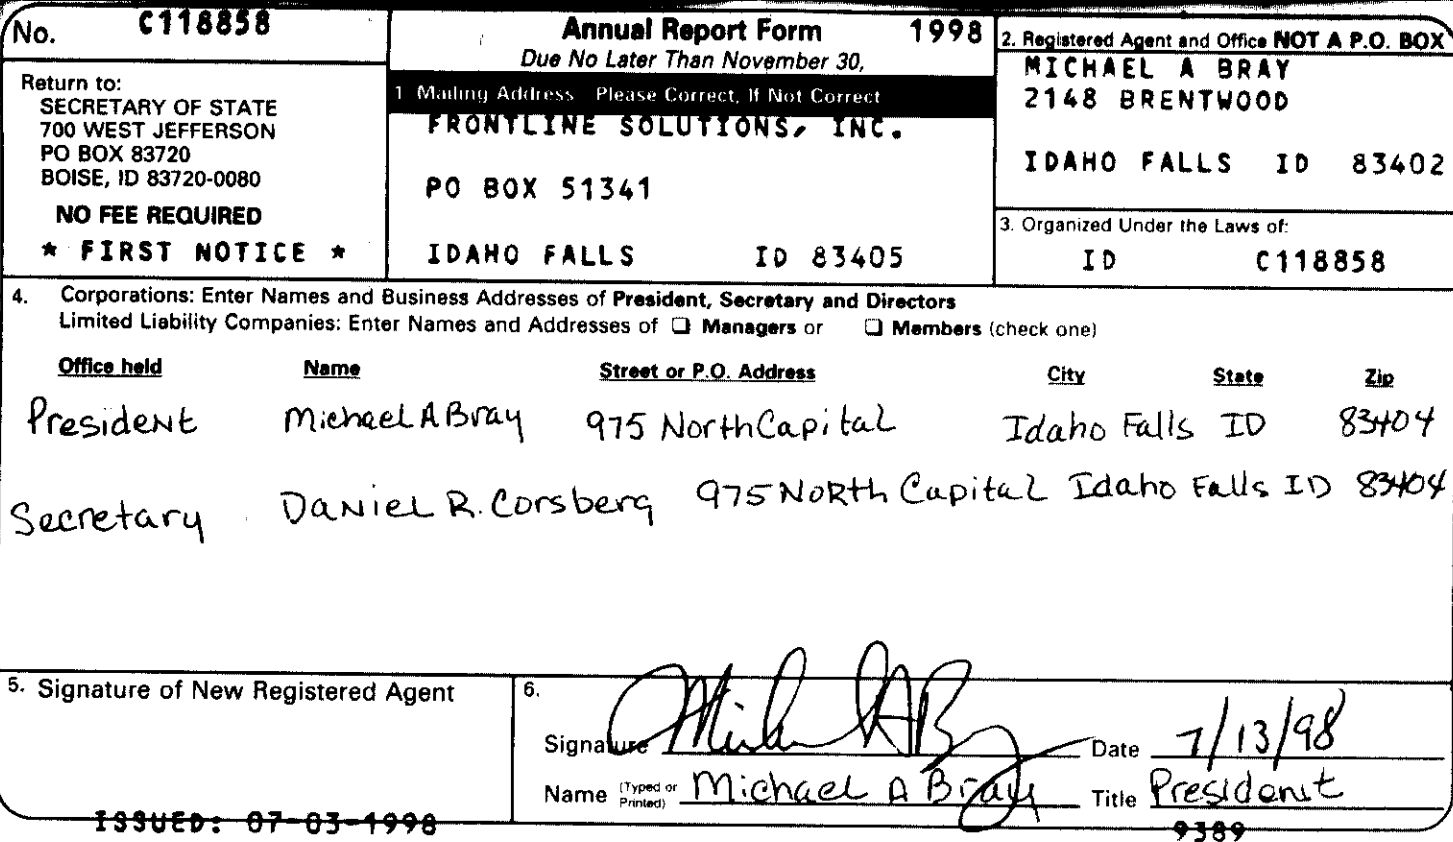 No. C118858
Annual Report Form 1998
Due No Later Than November 30,
Return to:
SECRETARY OF STATE
700 WEST JEFFERSON
PO BOX 83720
BOISE, ID 83720-0080
NO FEE REQUIRED
* FIRST NOTICE *
1 Mailing Address Please Correct, If Not Correct
FRONTLINE SOLUTIONS, INC.
PO BOX 51341
IDAHO FALLS ID 83405
2. Registered Agent and Office NOT A P.O. BOX
MICHAEL A BRAY
2148 BRENTWOOD
IDAHO FALLS ID 83402
3. Organized Under the Laws of:
ID C118858
4. Corporations: Enter Names and Business Addresses of President, Secretary and Directors
Limited Liability Companies: Enter Names and Addresses of ☐ Managers or ☐ Members (check one)
Office held Name Street or P.O. Address City State Zip
President Michael A Bray 975 North Capital Idaho Falls ID 83404
Secretary Daniel R. Corsberg 975 North Capital Idaho Falls ID 83404
5. Signature of New Registered Agent
6.
Signature Michael A Bray Date 7/13/98
Name (Typed or Printed) Michael A Bray Title President
ISSUED: 07-03-1998
9389